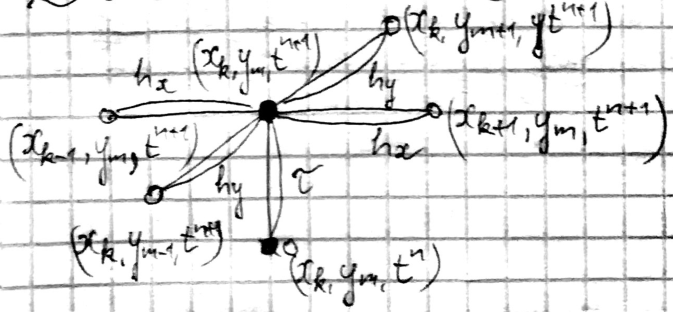 (x_k, y_{m+1}, yt^{n+1})
h_x (x_k, y_m, t^{n+1})
h_y
(x_{k+1}, y_m, t^{n+1})
h_x
(x_{k-1}, y_m, t^{n+1})
h_y τ
(x_k, y_{m-1}, t^{n+1})
(x_k, y_m, t^n)